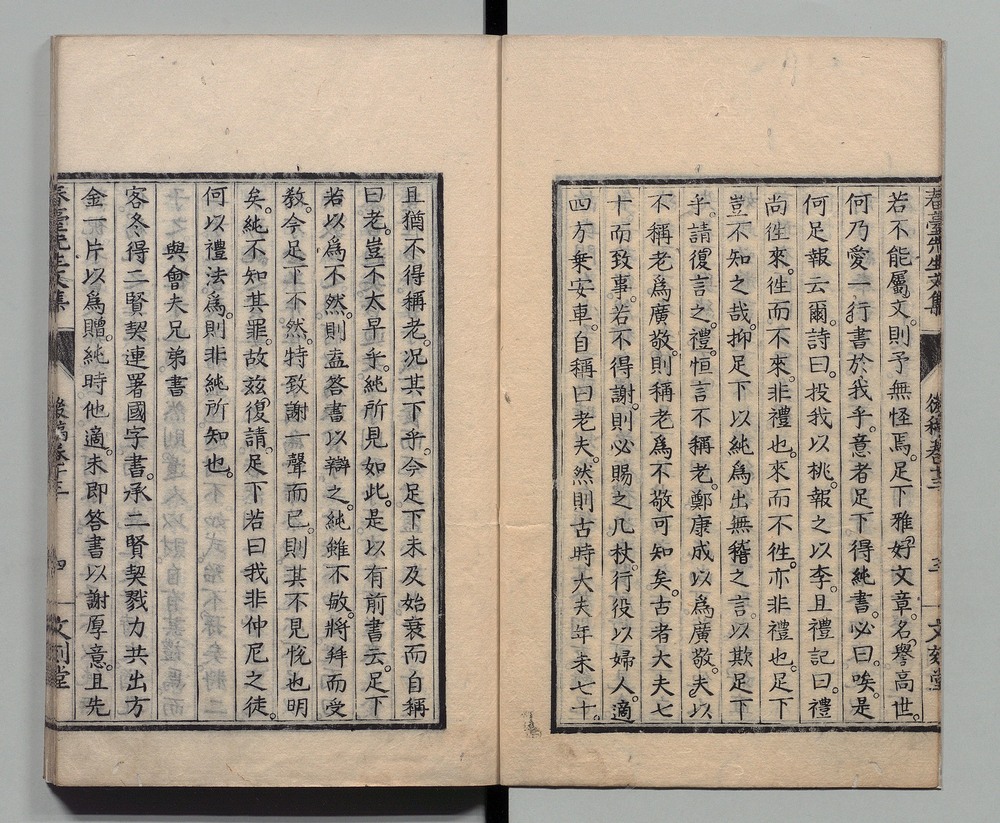 若不能屬文則予無怪焉。足下雅好文章。名譽高世。
何乃愛一行書於我乎。意者足下得純書。必曰。唉。是
何足報云爾。詩曰。投我以桃。報之以李。且禮記曰。禮
尚徃來。徃而不來。非禮也。來而不徃。亦非禮也。足下
豈不知之哉。抑足下以純爲出無稽之言。以欺足下
乎。請復言之。禮恒言不稱老。鄭康成以爲廣敬。夫以
不稱老爲廣敬。則稱老爲不敬可知矣。古者大夫七
十而致事。若不得謝。則必賜之几杖。行役以婦人。適
四方乗安車。自稱曰老夫。然則古時大夫年未七十。
春臺先生文集
後稿卷十三
文刻堂
且猶不得稱老。况其下乎。今足下未及始衰而自稱
曰老。豈不太早乎。純所見如此。是以有前書云。足下
若以爲不然。則盍答書以辯之。純雖不敏。將拜而受
教。今足下不然。特致謝一聲而已。則其不見悅也明
矣。純不知其罪。故兹復請。足下若曰我非仲尼之徒。
何以禮法爲。則非純所知也。
與會夫兄弟書
客冬得二賢契連署國字書。承二賢契戮力共出方
金一片以爲贈。純時他適。未即答書以謝厚意。且先
春臺先生文集
後稿卷十三
四
文刻堂